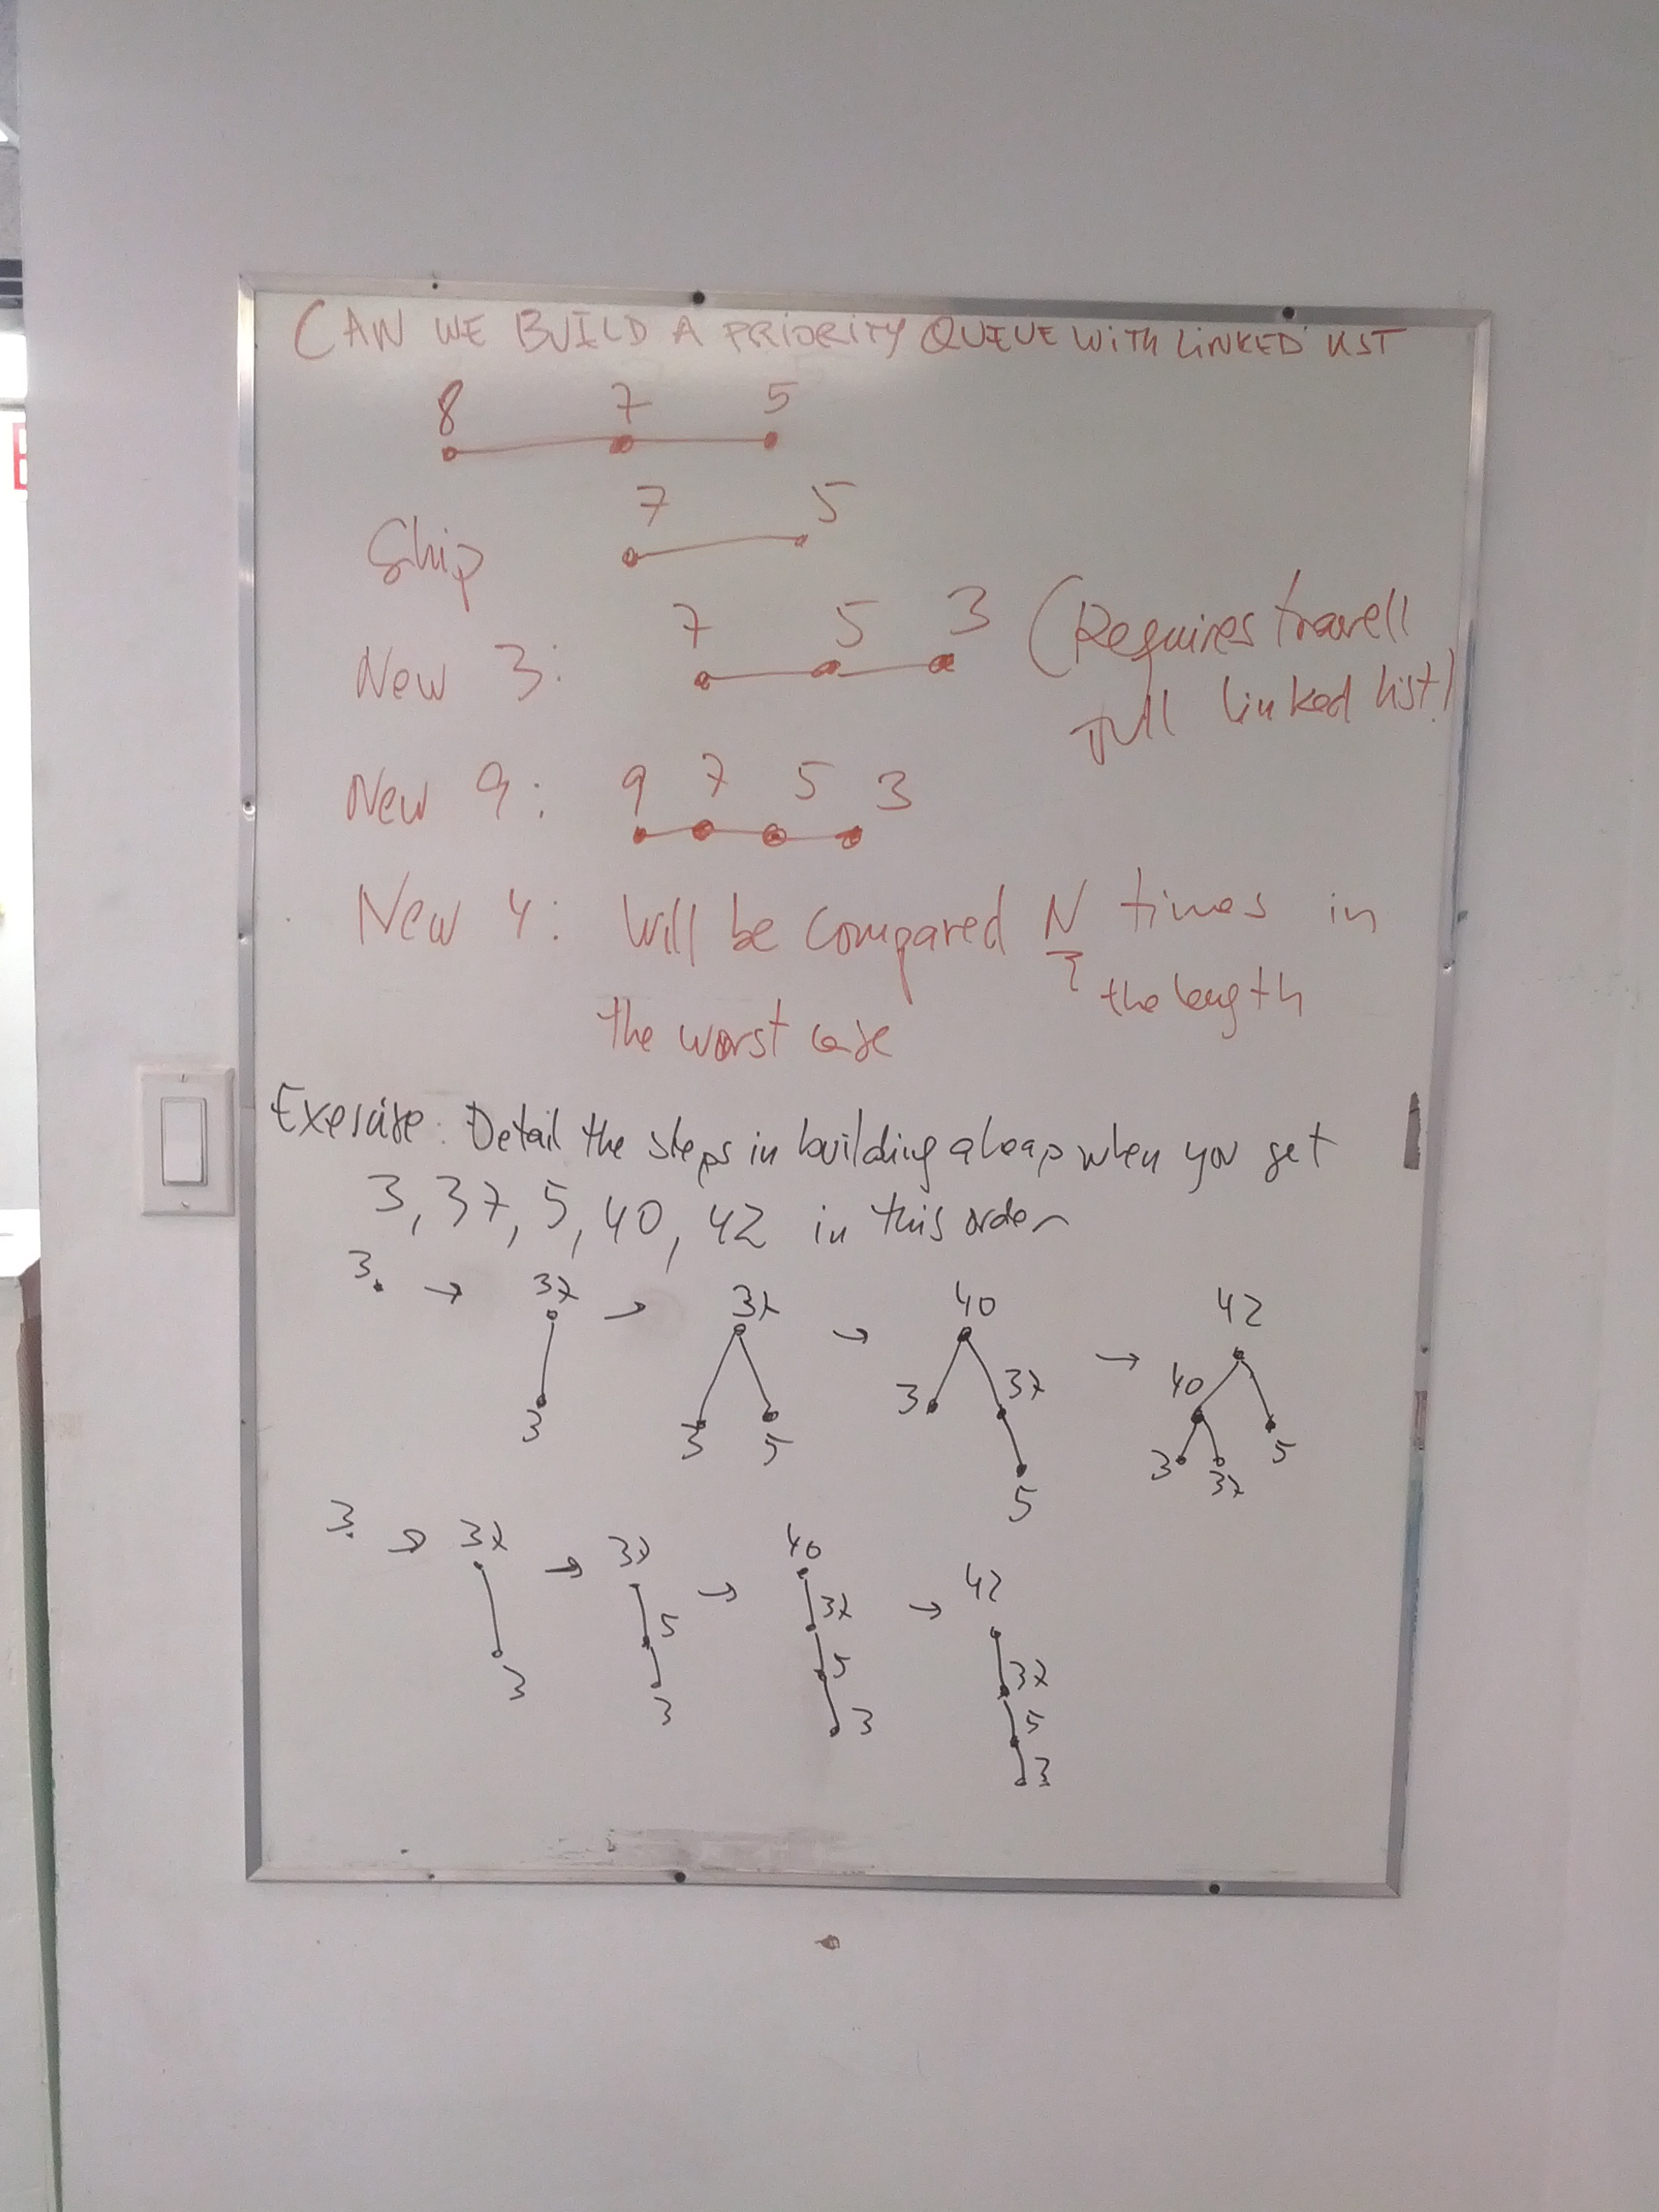 CAN WE BUILD A PRIORITY QUEUE WITH LINKED LIST
8 7 5
7 5
Ship
New 3: 7 5 3 (Requires travell
full linked list!)
New 9: 9 7 5 3
New 4: Will be compared N times in
the length
the worst case
Exercise: Detail the steps in building a heap when you get
3, 37, 5, 40, 42 in this order
3 → 37 → 37 → 40 → 42
3 3 5 3 37 40 5
5 3 37
3 → 37 → 37 → 40 → 42
3 5 37 37
3 5 5
3 3